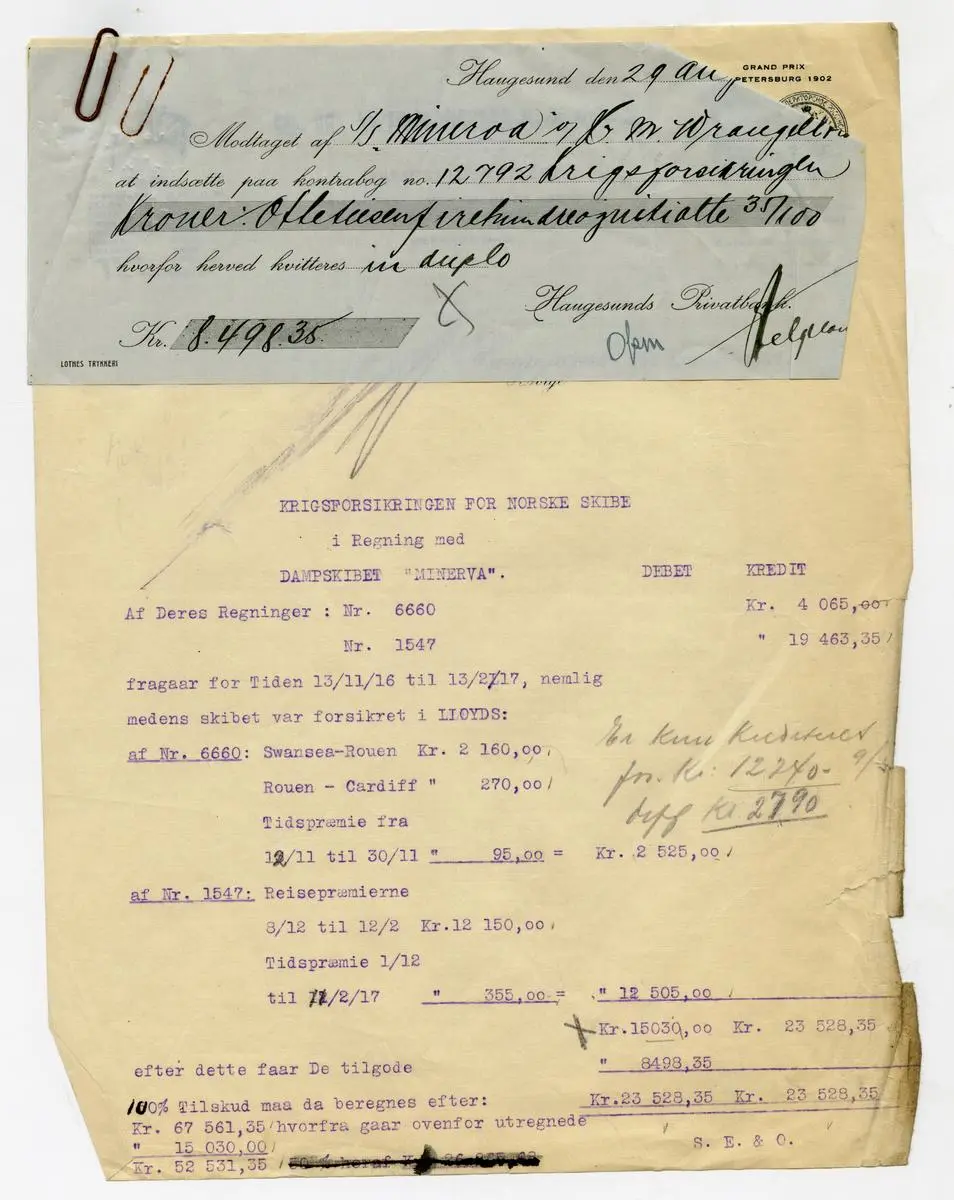 Haugesund den 29 Aug
GRAND PRIX
PETERSBURG 1902
Modtaget af S/S. Minerva
at indsætte paa kontrabog no. 12792 Krigsforsikringen
Kroner: Ottetusenfirehundreognitiotte 35/100
hvorfor herved kvitteres in duplo
Haugesunds Privatbank.
Kr. 8.498.35
LOTHES TRYKKERI
KRIGSFORSIKRINGEN FOR NORSKE SKIBE
i Regning med
DAMPSKIBET "MINERVA". DEBET KREDIT
Af Deres Regninger : Nr. 6660 Kr. 4 065,00
Nr. 1547 " 19 463,35
fragaar for Tiden 13/11/16 til 13/2/17, nemlig
medens skibet var forsikret i LLOYDS:
af Nr. 6660: Swansea-Rouen Kr. 2 160,00
Rouen - Cardiff " 270,00
Er kun krediteret
for Kr. 12240.- 9/5
diff Kr 2790
Tidspræmie fra
12/11 til 30/11 " 95,00 = Kr. 2 525,00
af Nr. 1547: Reisepræmierne
8/12 til 12/2 Kr.12 150,00
Tidspræmie 1/12
til 12/2/17 " 355,00 = " 12 505,00
Kr.15030,00 Kr. 23 528,35
" 8498,35
efter dette faar De tilgode
Kr.23 528,35 Kr. 23 528,35
100% Tilskud maa da beregnes efter:
Kr. 67 561,35 hvorfra gaar ovenfor utregnede
" 15 030,00
S. E. & O.
Kr. 52 531,35